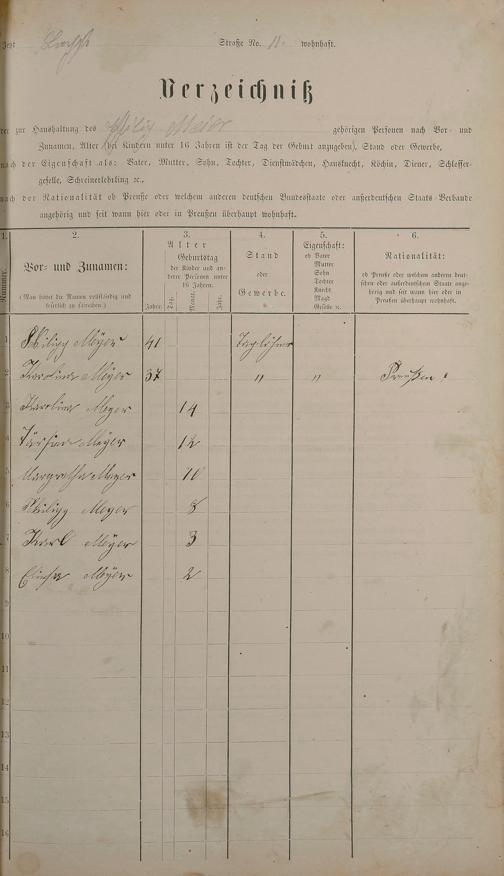 Straße No. 11. wohnhaft.
Verzeichniß
der zur Haushaltung des Philip Meier gehörigen Personen nach Vor- und
Zunamen, Alter (bei Kindern unter 16 Jahren ist der Tag der Geburt anzugeben), Stand oder Gewerbe,
nach der Eigenschaft als: Vater, Mutter, Sohn, Tochter, Dienstmädchen, Hausknecht, Köchin, Diener, Schlosser-
geselle, Schreinerlehrling ꝛc.,
nach der Nationalität ob Preuße oder welchem anderen deutschen Bundesstaate oder außerdeutschen Staats-Verbande
angehörig und seit wann hier oder in Preußen überhaupt wohnhaft.
1. 2. 3. 4. 5. 6.
Nummer.
Vor- und Zunamen:
(Man bittet die Namen vollständig und
leserlich zu schreiben.)
Alter
Geburtstag
der Kinder und an-
derer Personen unter
16 Jahren.
Jahre. Tag. Monat. Jahr.
Stand
oder
Gewerbe.
Eigenschaft:
ob Vater
Mutter
Sohn
Tochter
Knecht
Magd
Geselle ꝛc.
Nationalität:
ob Preuße oder welchem anderen deut-
schen oder außerdeutschen Staate ange-
hörig und seit wann hier oder in
Preußen überhaupt wohnhaft.
1 Philipp Meÿer 41 Taglöhner
2 Karolina Meÿer 37 " " Preußen "
3 Karolina Meyer 14
4 Meÿer 12
5 Margretha Meyer 10
6 Philipp Meyer 8
7 Karl Meÿer 3
8 Meÿer 2
9
10
11
12
13
14
15
16